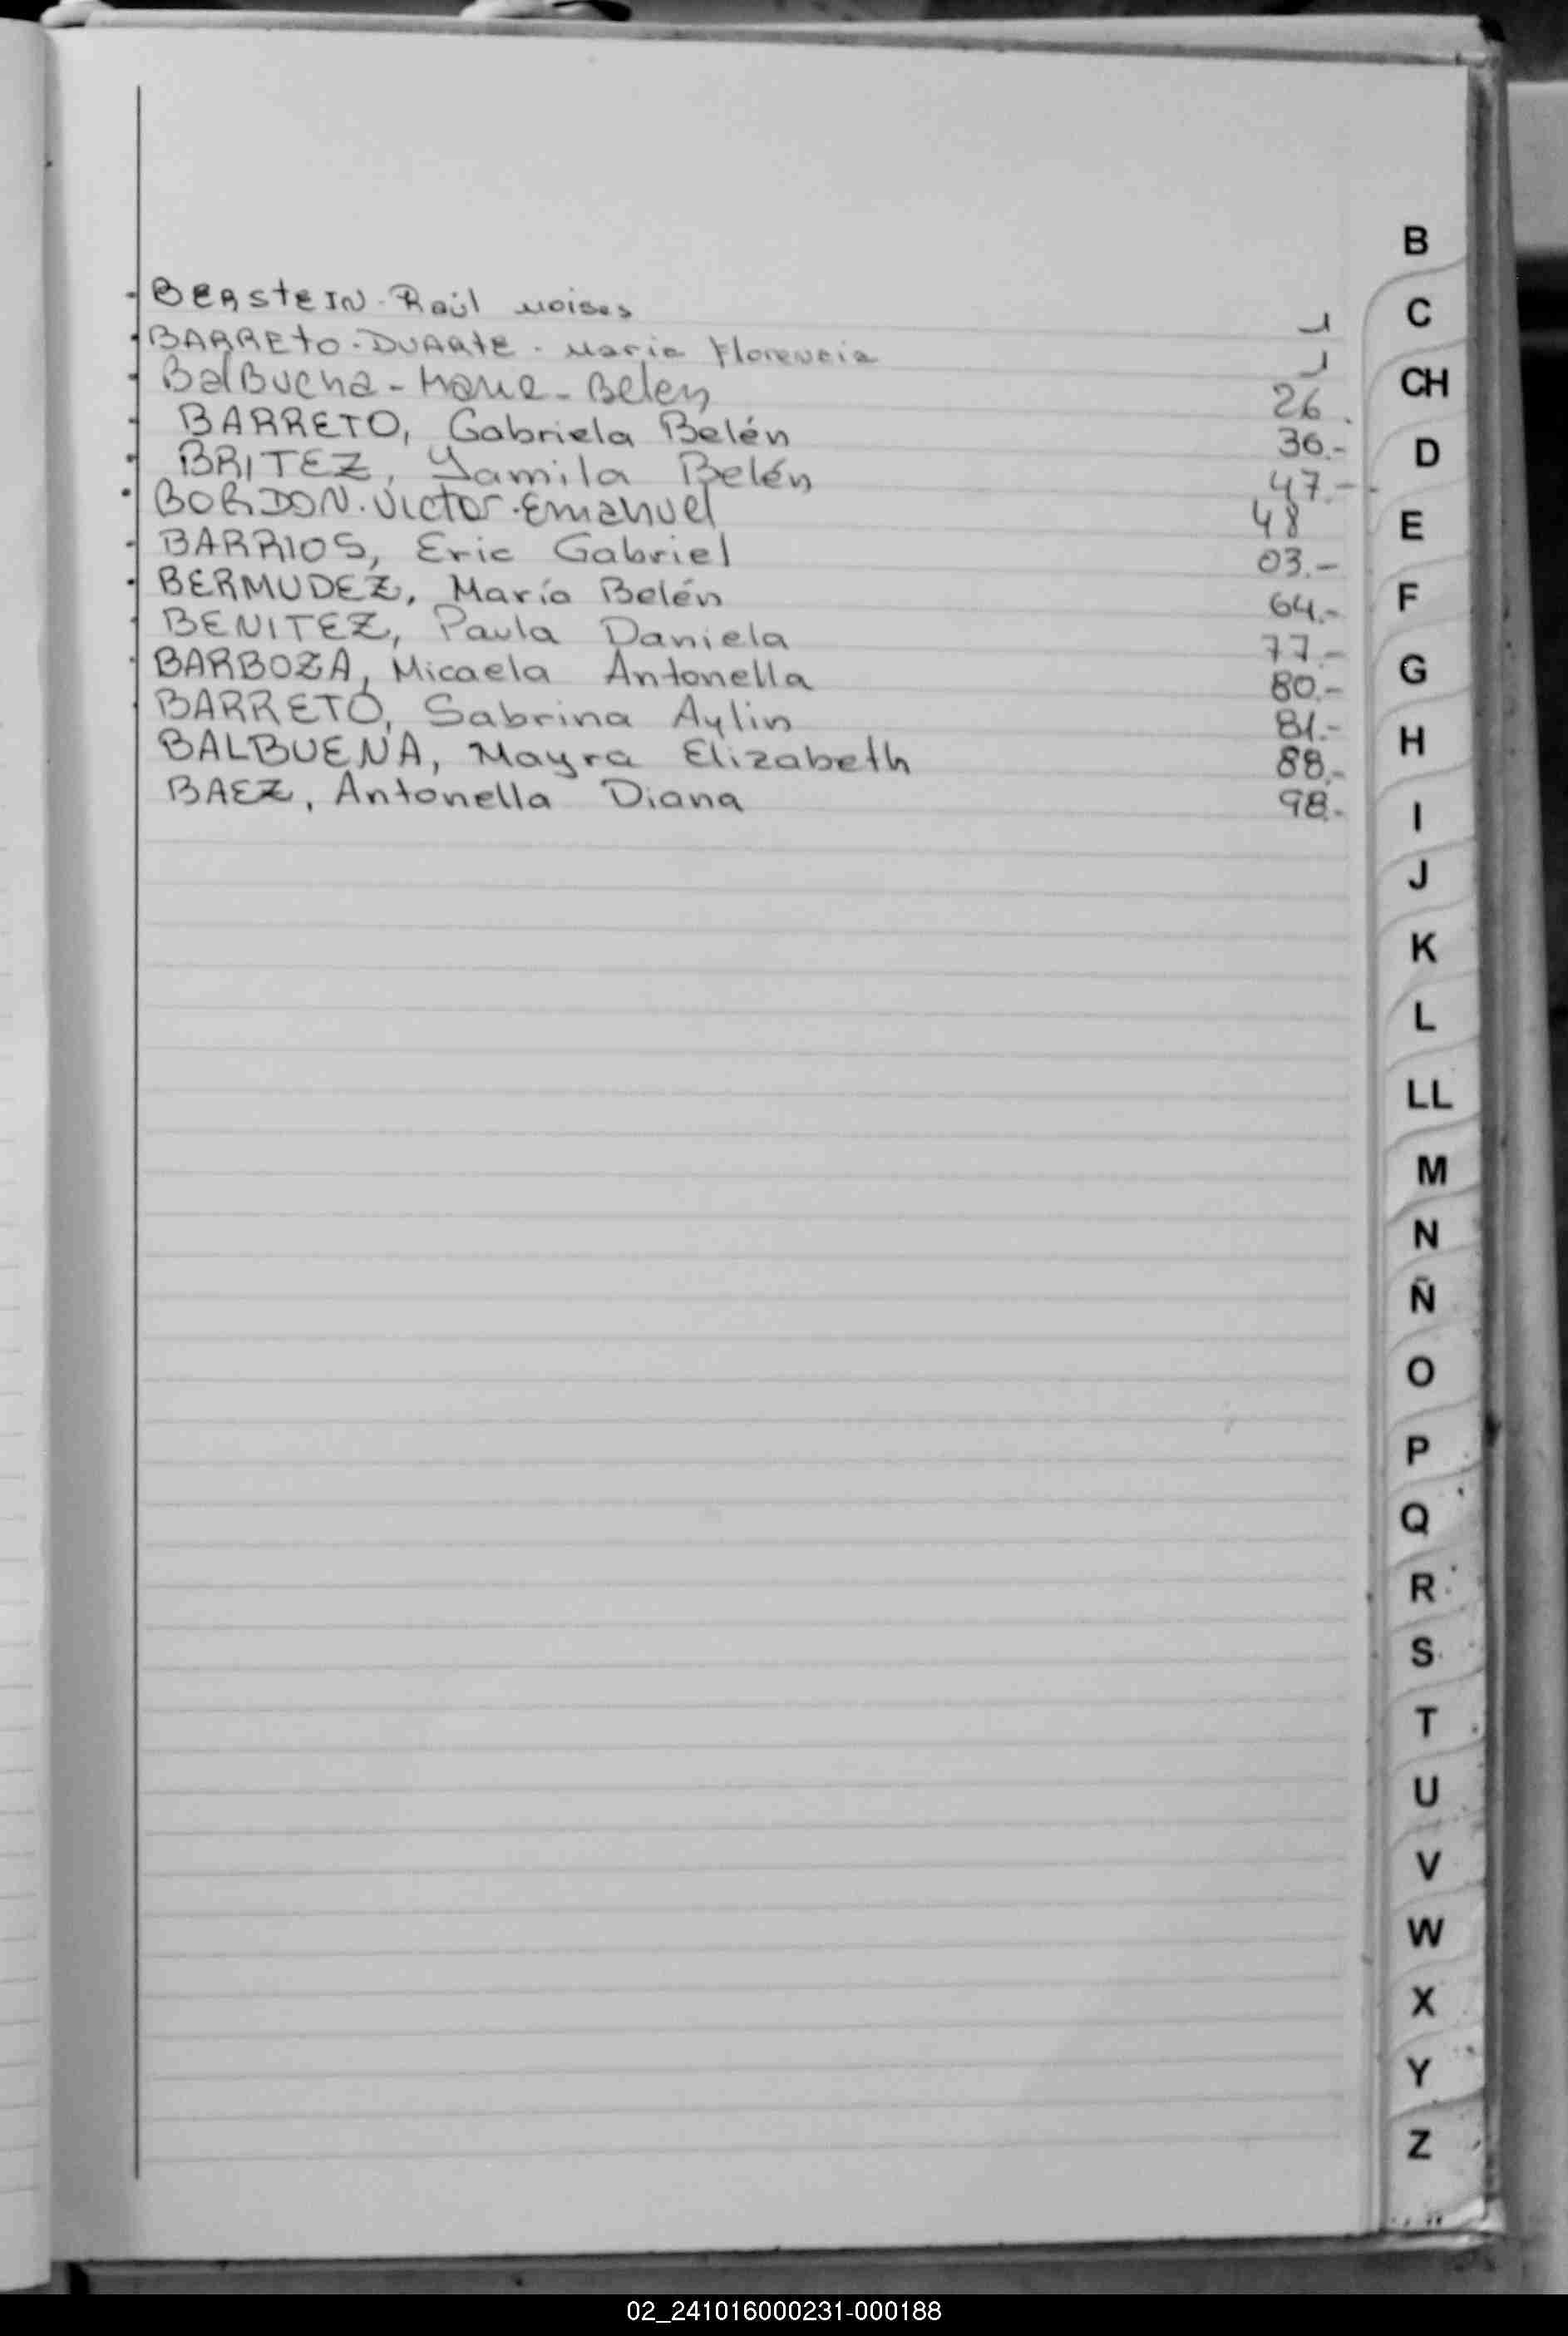 BERSTEIN - Raúl Moises 1
BARRETO - DUARTE - Maria Florencia 1
BalBuena - Maria - Belen 26
BARRETO, Gabriela Belén 36.-
BRITEZ, Yamila Belén 47.-
BORDON. Victor. Emanuel 48
BARRIOS, Eric Gabriel 03.-
BERMUDEZ, María Belén 64.-
BENITEZ, Paula Daniela 77.-
BARBOZA, Micaela Antonella 80.-
BARRETO, Sabrina Aylin 81.-
BALBUENA, Mayra Elizabeth 88.-
BAEZ, Antonella Diana 98.-
B
C
CH
D
E
F
G
H
I
J
K
L
LL
M
N
Ñ
O
P
Q
R
S
T
U
V
W
X
Y
Z
02_241016000231-000188